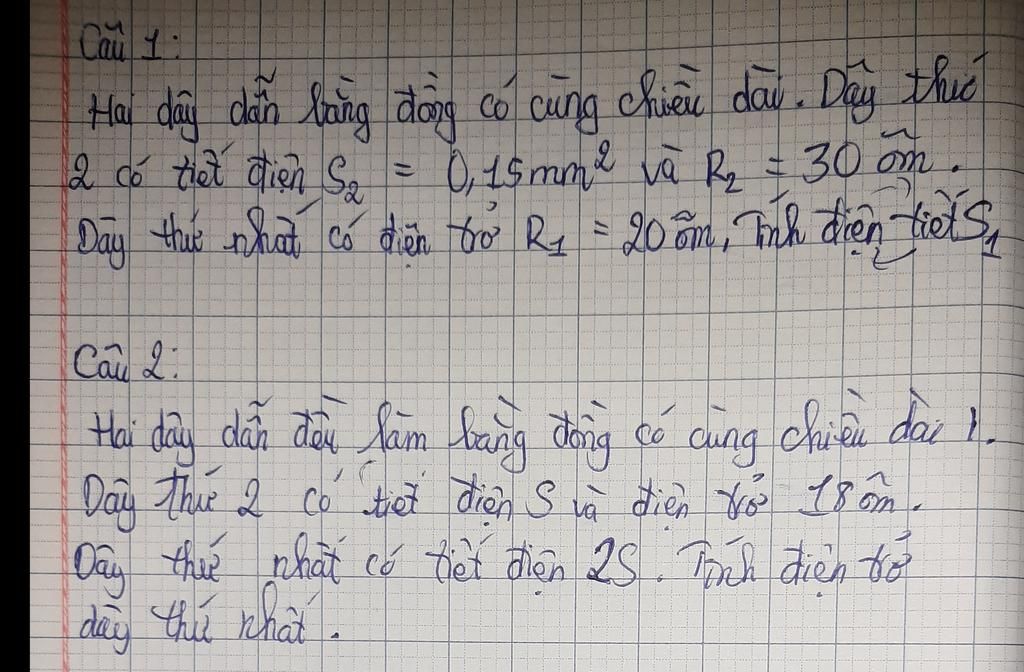 Câu 1:
Hai dây dẫn bằng đồng có cùng chiều dài. Dây thứ
2 có tiết điện S₂ = 0,15mm² và R₂ = 30 ôm.
Dây thứ nhất có điện trở R₁ = 20 ôm, Tính điện tiết S₁
Câu 2:
Hai dây dẫn đều làm bằng đồng có cùng chiều dài l.
Dây thứ 2 có tiết điện S và điện trở 18 ôm.
Dây thứ nhất có tiết điện 2S. Tính điện trở
dây thứ nhất.